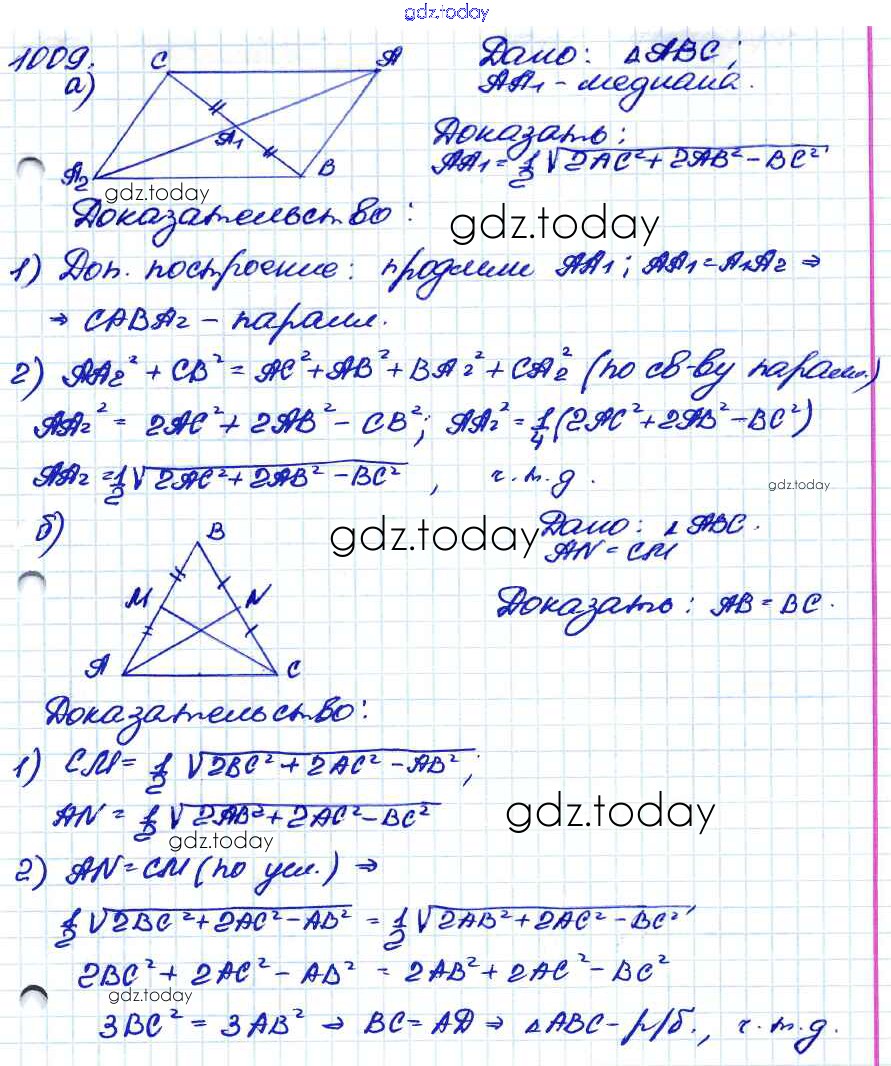 gdz.today
1009.
а)
C A
A₁
A₂ B
Дано: △ABC;
AA₁ - медиана.
Доказать:
AA₁ = 1/2 √(2AC² + 2AB² - BC²)
gdz.today
Доказательство:
gdz.today
1) Доп. построение: продлим AA₁; AA₁ = A₁A₂ ⇒
⇒ CABA₂ - паралл.
2) AA₂² + CB² = AC² + AB² + BA₂² + CA₂² (по св-ву паралл.)
AA₂² = 2AC² + 2AB² - CB²; AA₂² = 1/4 (2AC² + 2AB² - BC²)
AA₂ = 1/2 √(2AC² + 2AB² - BC²), ч.т.д.
gdz.today
б)
B
M N
A C
gdz.today
Дано: △ABC.
AN = CM
Доказать: AB = BC.
Доказательство:
1) CM = 1/2 √(2BC² + 2AC² - AB²);
AN = 1/2 √(2AB² + 2AC² - BC²)
gdz.today
gdz.today
2) AN = CM (по усл.) ⇒
1/2 √(2BC² + 2AC² - AB²) = 1/2 √(2AB² + 2AC² - BC²)
2BC² + 2AC² - AB² = 2AB² + 2AC² - BC²
gdz.today
3BC² = 3AB² ⇒ BC = AD ⇒ △ABC - р/б., ч.т.д.